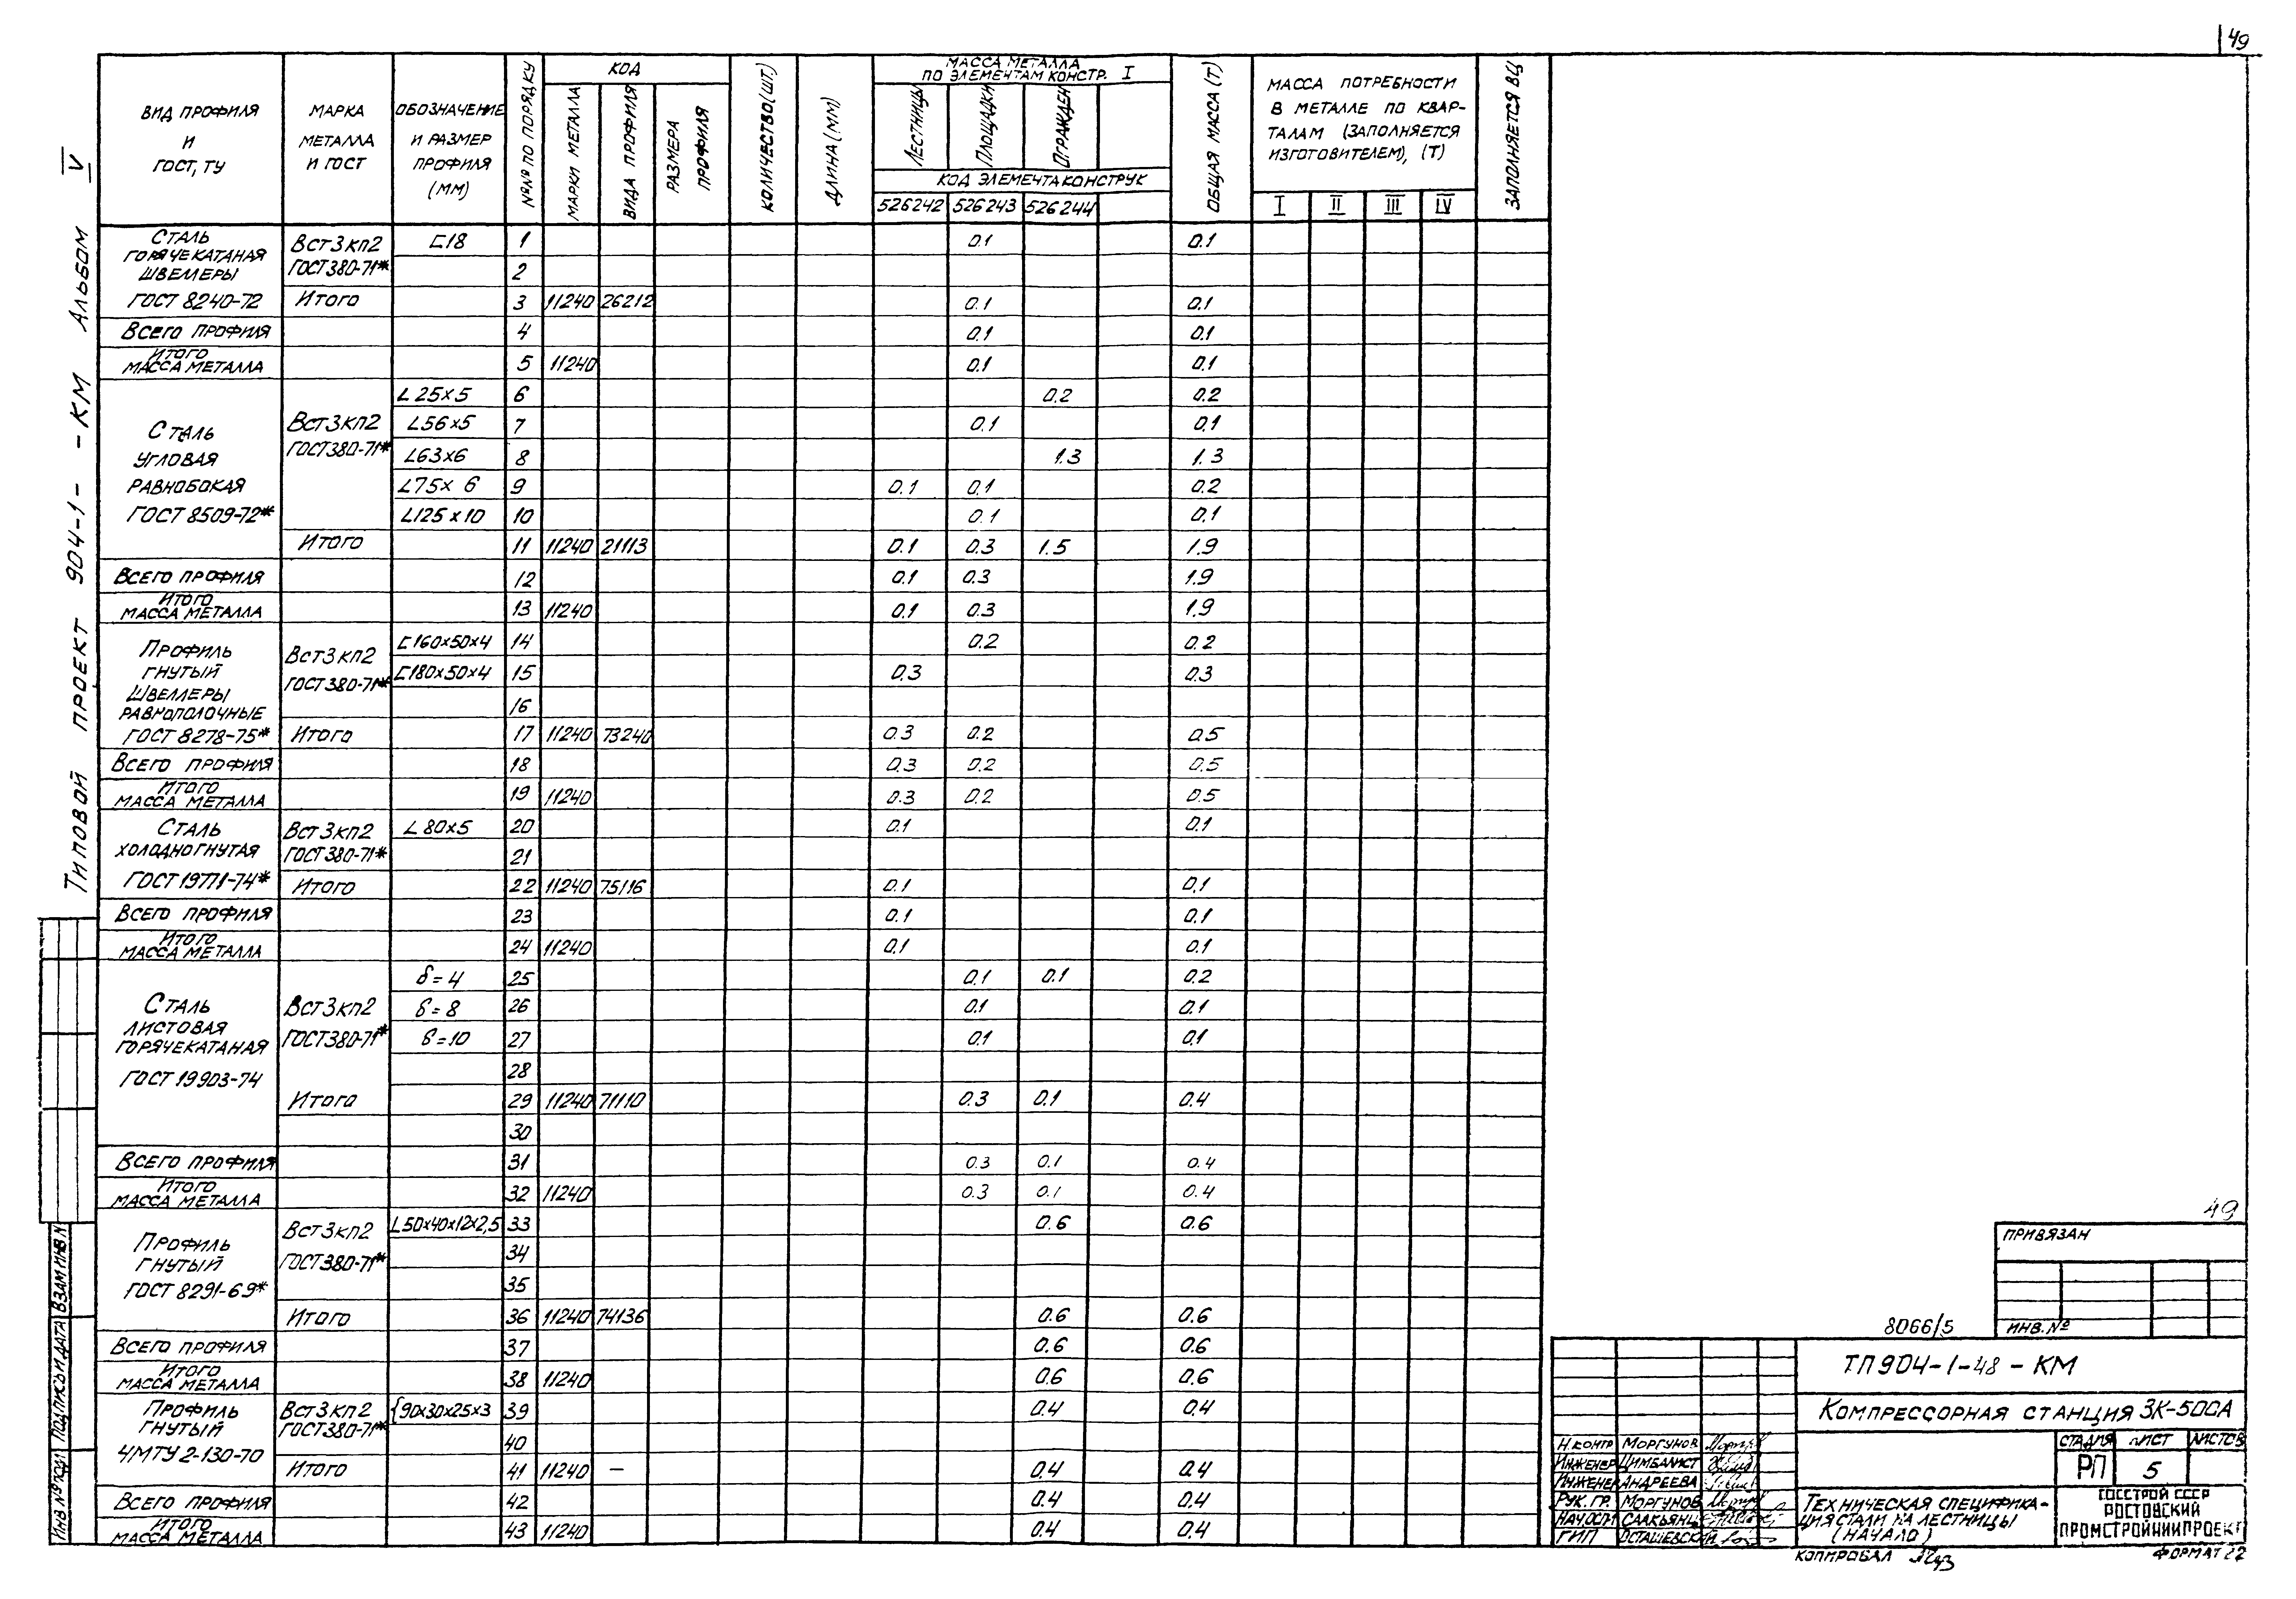 49
Типовой проект 904-1- -КМ Альбом IV
Вид профиля и ГОСТ, ТУ
Марка металла и ГОСТ
Обозначение и размер профиля (мм)
№№ по порядку
Код
Марки металла
Вида профиля
Размера профиля
Количество (шт.)
Длина (мм)
Масса металла по элементам констр. I
Лестницы
Площадки
Огражден
Код элемента конструк
526242 526243 526244
Общая масса (т)
Масса потребности в металле по кварталам (заполняется изготовителем), (т)
I II III IV
Заполняется ВЦ
Сталь горячекатаная швеллеры ГОСТ 8240-72
Вст3кп2 ГОСТ 380-71*
[18 1 0.1 0.1
2
Итого 3 11240 26212 0.1 0.1
Всего профиля 4 0.1 0.1
Итого масса металла 5 11240 0.1 0.1
Сталь угловая равнобокая ГОСТ 8509-72*
Вст3кп2 ГОСТ 380-71*
L 25x5 6 0.2 0.2
L56x5 7 0.1 0.1
L63x6 8 1.3 1.3
L75x6 9 0.1 0.1 0.2
L125x10 10 0.1 0.1
Итого 11 11240 21113 0.1 0.3 1.5 1.9
Всего профиля 12 0.1 0.3 1.9
Итого масса металла 13 11240 0.1 0.3 1.9
Профиль гнутый швеллеры равнополочные ГОСТ 8278-75*
Вст3кп2 ГОСТ 380-71*
[160x50x4 14 0.2 0.2
[180x50x4 15 0.3 0.3
16
Итого 17 11240 73240 0.3 0.2 0.5
Всего профиля 18 0.3 0.2 0.5
Итого масса металла 19 11240 0.3 0.2 0.5
Сталь холодногнутая ГОСТ 19771-74*
Вст3кп2 ГОСТ 380-71*
L 80x5 20 0.1 0.1
21
Итого 22 11240 75116 0.1 0.1
Всего профиля 23 0.1 0.1
Итого масса металла 24 11240 0.1 0.1
Сталь листовая горячекатаная ГОСТ 19903-74
Вст3кп2 ГОСТ 380-71*
δ=4 25 0.1 0.1 0.2
δ=8 26 0.1 0.1
δ=10 27 0.1 0.1
28
Итого 29 11240 71110 0.3 0.1 0.4
30
Всего профиля 31 0.3 0.1 0.4
Итого масса металла 32 11240 0.3 0.1 0.4
Профиль гнутый ГОСТ 8291-69*
Вст3кп2 ГОСТ 380-71*
L50x40x12x2,5 33 0.6 0.6
34
35
Итого 36 11240 74136 0.6 0.6
Всего профиля 37 0.6 0.6
Итого масса металла 38 11240 0.6 0.6
Профиль гнутый ЧМТУ 2-130-70
Вст3кп2 ГОСТ 380-71*
{90x30x25x3 39 0.4 0.4
40
Итого 41 11240 — 0.4 0.4
Всего профиля 42 0.4 0.4
Итого масса металла 43 11240 0.4 0.4
Инв № подл Подпись и дата Взам инв N
49
Привязан
Инв. №
8066/5
ТП904-1-48-КМ
Компрессорная станция 3К-500А
Н.контр Моргунов
Инженер Цимбалист
Инженер Андреева
Рук. гр. Моргунов
Нач осп Саакьянц
ГИП Осташевский
Стадия Лист Листов
РП 5
Техническая спецификация стали на лестницы (начало)
Госстрой СССР
Ростовский
Промстройниипроект
Копировал
Формат 22